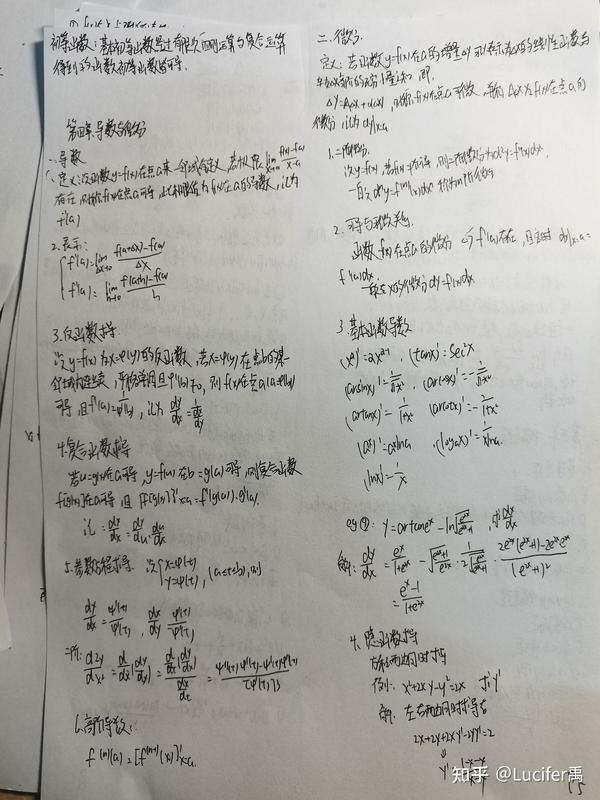 初等函数：基本初等函数经过有限次四则运算与复合运算
得到的函数初等函数皆可导.
第四章.导数与微分
一.导数
1.定义:设函数y=f(x)在点a某一邻域有定义,若极限 lim x→a f(x)-f(a)/x-a
存在,则称f(x)在点a可导,此极限值为f(x)在a的导数,记为
f'(a)
2.表示:
f'(a)=lim Δx→0 f(a+Δx)-f(a)/Δx
f'(a)=lim h→0 f(a+h)-f(a)/h
3.反函数求导.
设y=f(x)为x=φ(y)的反函数,若x=φ(y)在点b的某
邻域内连续,严格单调且φ'(b)≠0,则f(x)在点a(a=φ(b))
可导,且f'(a)=1/φ'(b),记为 dy/dx=1/(dx/dy)
4.复合函数求导
若u=g(x)在a可导,y=f(u)在b=g(a)可导,则复合函数
f[g(x)]在a可导,且{f[g(x)]}'x=a=f'(g(a)).g'(a).
记=dy/dx=dy/du.du/dx
5.参数方程求导. 设{x=φ(t)
y=ψ(t), (a≤t≤b),则
dy/dx=ψ'(t)/φ'(t),
二阶:
6.高阶导数:
f⁽ⁿ⁾(a)=[f⁽ⁿ⁻¹⁾(x)]'x=a.
二.微分.
定义:若函数y=f(x)在a的增量Δy可表示为Δx的线性函数与
Δy=AΔx+o(Δx),则称f(x)在点a可微,并称AΔx为f(x)在点a的
微分,记为dy|x=a
设y=f(x),
2.可导与可微关系.
函数f(x)在点a可微分⇔f'(a)存在,且这时dy|x=a=
f'(a)dx.
一般在x的微分dy=f'(x)dx.
3.基本函数导数
(xᵃ)'=axᵃ⁻¹, (tanx)'=sec²x
(arcsinx)'=1/√1-x² (arccosx)'=-1/√1-x²
(arctanx)'=1/1+x²
(aˣ)'=aˣlna (logₐx)'=1/xlna.
(lnx)'=1/x
eg①: y=arctaneˣ-ln√(e²ˣ/e²ˣ+1) ,求dy/dx
解: dy/dx=eˣ/1+e²ˣ-√(e²ˣ+1/e²ˣ)·1/2√(e²ˣ/e²ˣ+1)·2e²ˣ(e²ˣ+1)-2e²ˣe²ˣ/(e²ˣ+1)²
=eˣ-1/1+e²ˣ
4.隐函数求导
方程两边同时求导
例: x²+2xy-y²=2x 求y'
解: 左右两边同时求导得
2x+2y+2xy'-2yy'=2
⇓
15
知乎 @Lucifer禹